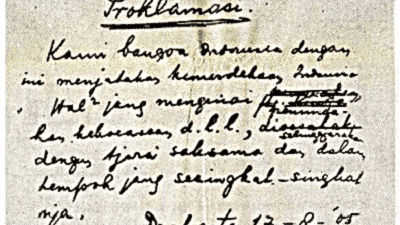 Proklamasi.
Kami bangsa Indonesia dengan
ini menjatakan kemerdekaan Indonesia
Hal² jang mengenai
kekoeasaan d.l.l., diseleng-
dengan tjara saksama dan dalam
tempoh jang sesingkat-singkat
nja.
17 - 8 - '05